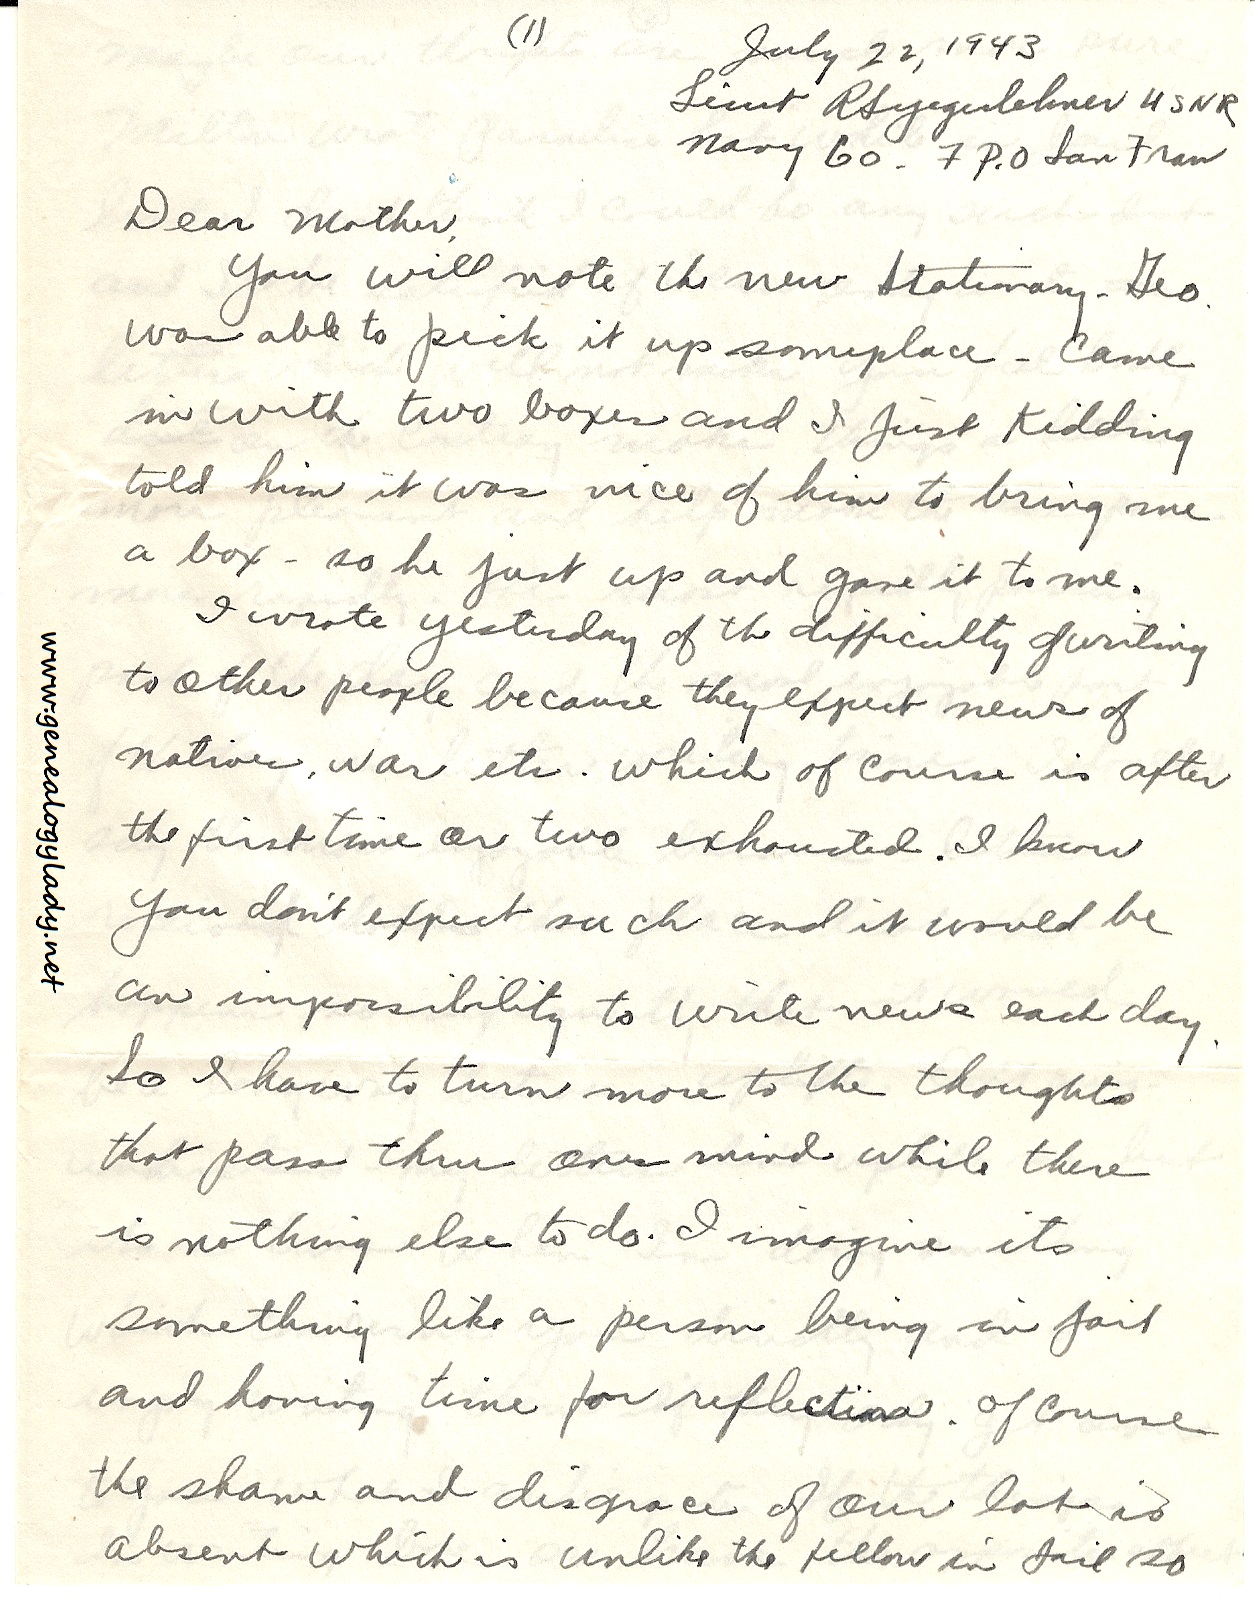 (1)
July 22, 1943
Lieut R S Yegerlehner USNR
Navy 60 - F P.O San Fran
Dear Mother,
You will note the new stationary - Geo.
was able to pick it up someplace - Came
in with two boxes and I just Kidding
told him it was nice of him to bring me
a box - so he just up and gave it to me.
I wrote yesterday of the difficulty of writing
to other people because they expect news of
natives, war etc. which of course is after
the first time or two exhausted. I know
you don't expect such and it would be
an impossibility to write news each day.
So I have to turn more to the thoughts
that pass thru ones mind while there
is nothing else to do. I imagine its
something like a person being in jail
and having time for reflection. Of course
the shame and disgrace of our lot is
absent which is unlike the fellow in jail so
www.genealogylady.net